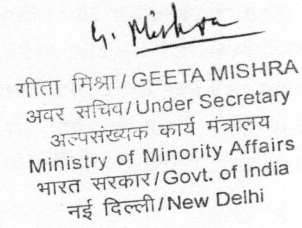 G. Mishra
गीता मिश्रा / GEETA MISHRA
अवर सचिव / Under Secretary
अल्पसंख्यक कार्य मंत्रालय
Ministry of Minority Affairs
भारत सरकार / Govt. of India
नई दिल्ली / New Delhi